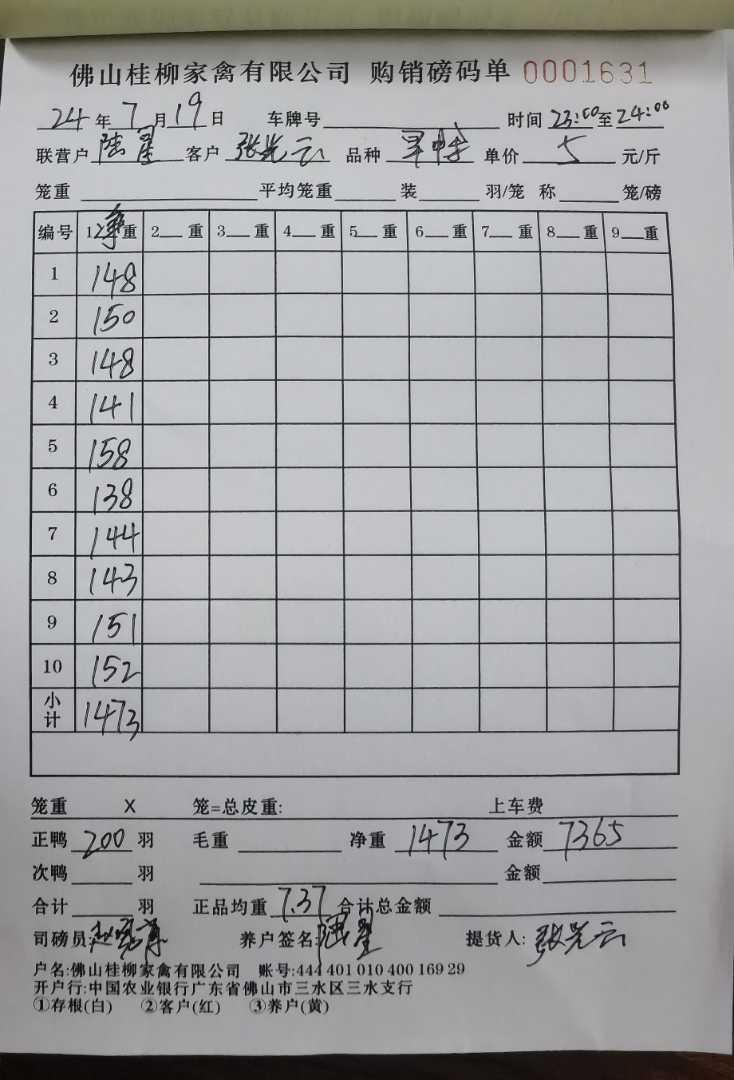 佛山桂柳家禽有限公司 购销磅码单 0001631
24年7月19日 车牌号 时间23:00至24:00
联营户 陆星 客户 张光云 品种 单价 5 元/斤
笼重 平均笼重 装 羽/笼 称 笼/磅
编号 1净重 2 重 3 重 4 重 5 重 6 重 7 重 8 重 9 重
1 148
2 150
3 148
4 141
5 158
6 138
7 144
8 143
9 151
10 152
小计 1473
笼重 X 笼=总皮重: 上车费
正鸭 200 羽 毛重 净重 1473 金额 7365
次鸭 羽 金额
合计 羽 正品均重 7.37 合计总金额
司磅员: 养户签名: 陆星 提货人: 张光云
户名:佛山桂柳家禽有限公司 账号:444 401 010 400 169 29
开户行:中国农业银行广东省佛山市三水区三水支行
①存根(白) ②客户(红) ③养户(黄)